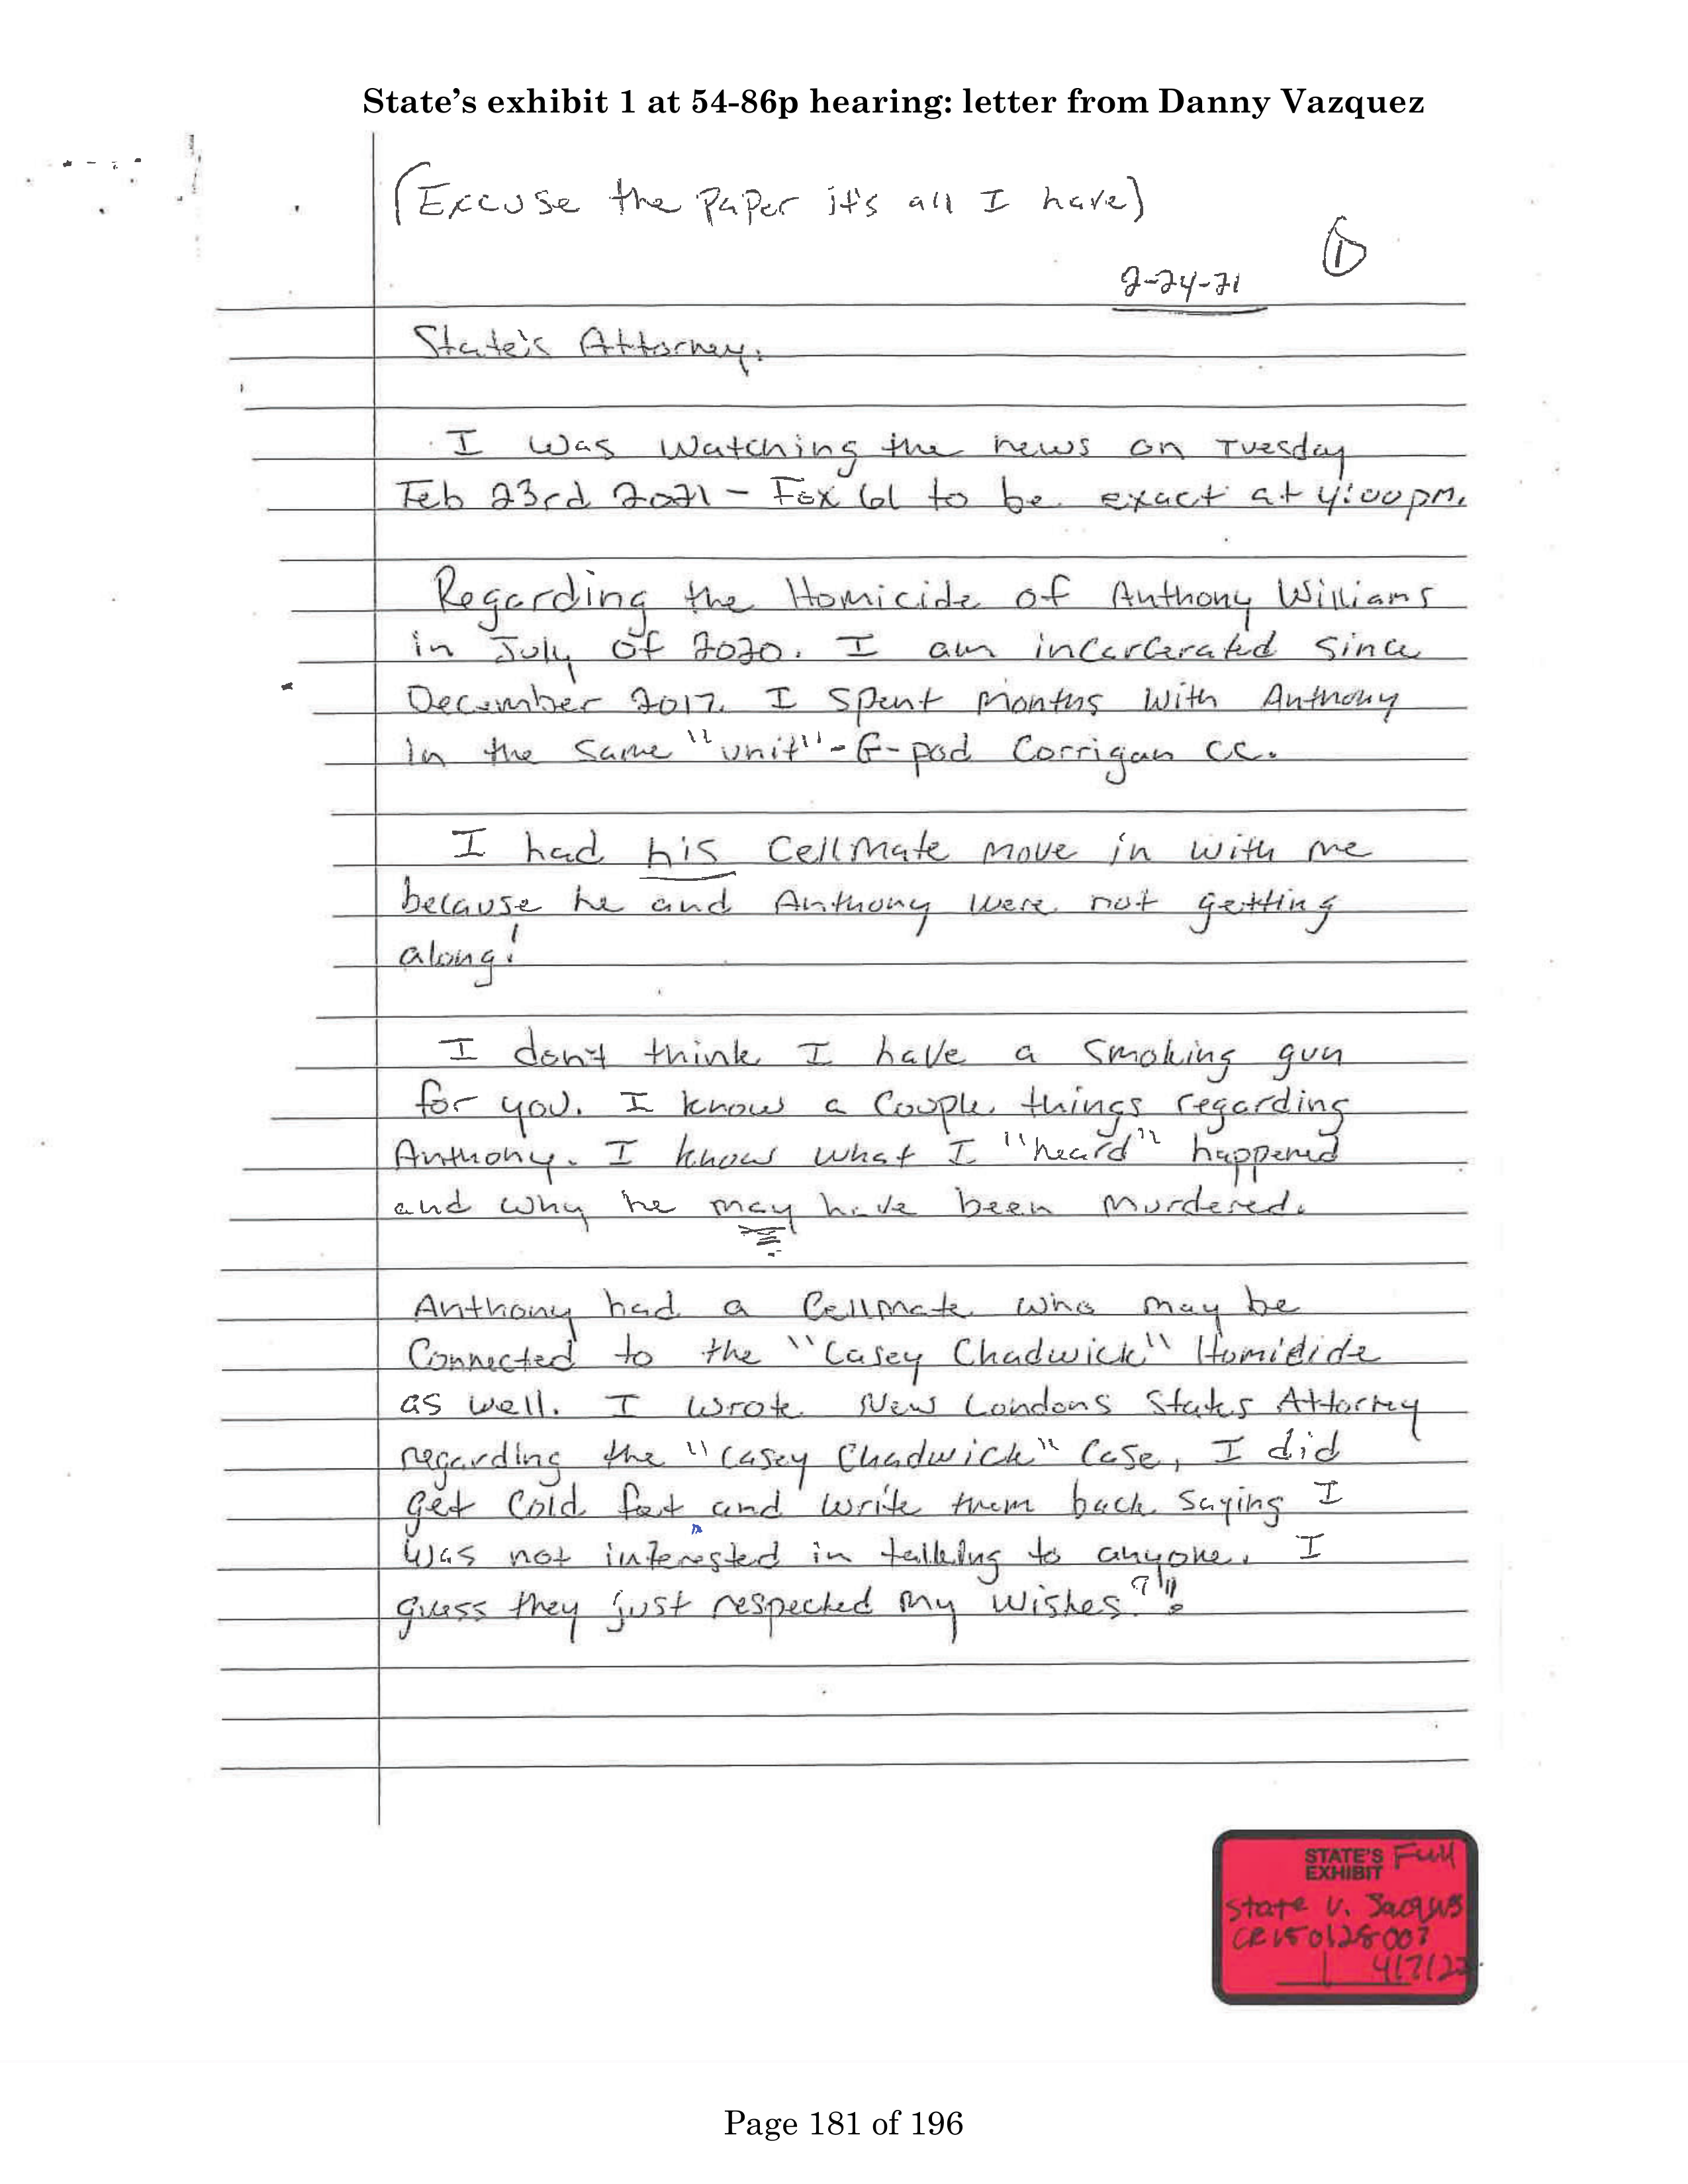 State's exhibit 1 at 54-86p hearing: letter from Danny Vazquez
(Excuse the paper it's all I have)
1
2-24-21
State's Attorney.
I was watching the news on Tuesday
Feb 23rd 2021 - Fox 61 to be exact at 4:00pm.
Regarding the Homicide of Anthony Williams
in July of 2020. I am incarcerated since
December 2017. I spent months with Anthony
in the same "unit" - G-pod Corrigan CC.
I had his cellmate move in with me
because he and Anthony were not getting
along!
I don't think I have a smoking gun
for you. I know a couple things regarding
Anthony. I know what I "heard" happened
and why he may have been murdered.
Anthony had a cellmate who may be
connected to the "Casey Chadwick" Homidide
as well. I wrote New Londons States Attorney
regarding the "Casey Chadwick" case, I did
get cold feet and write them back saying I
was not interested in talking to anyone. I
guess they just respected my wishes?!!
STATE'S Full
EXHIBIT
State v. Jacques
1 4/7/22
Page 181 of 196